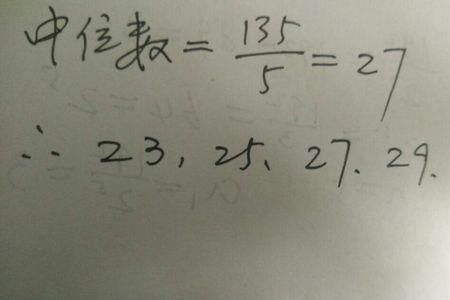 中位数 = 135/5 = 27
∴ 23, 25、27、29.